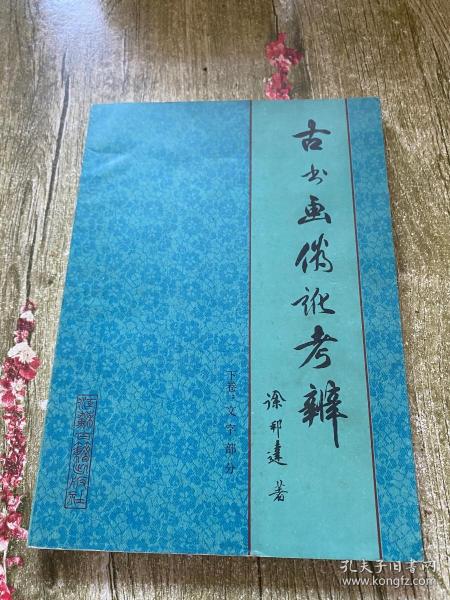 古书画伪讹考辨
徐邦达 著
下卷：文字部分
江苏古籍出版社
孔夫子旧书网
www.kongfz.com